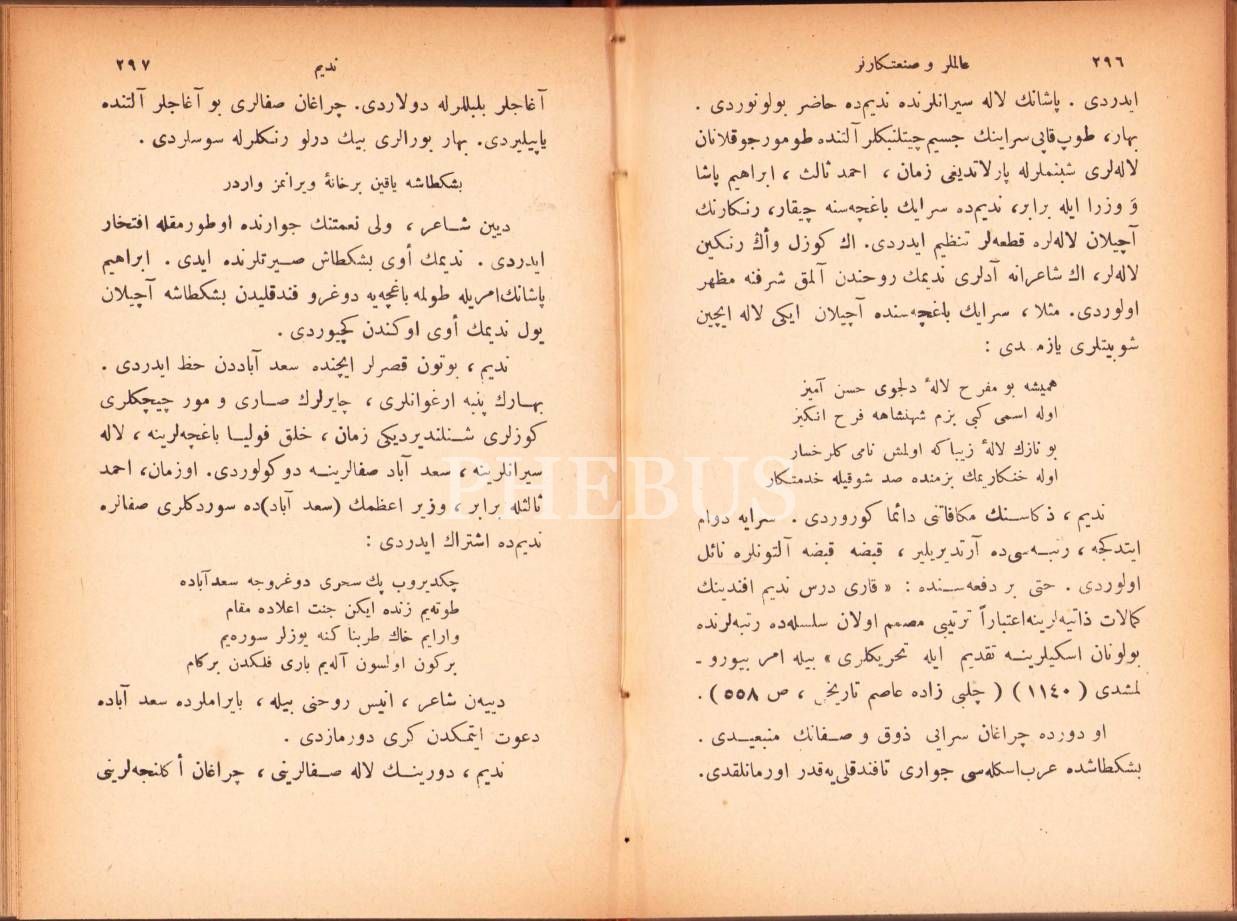 ٢٩٦
عالملر و صنعتكارلر
ايدردى . پاشانك لاله سيرانلرنده نديم‌ده حاضر بولونوردى .
بهار، طوب‌قاپى‌سراينك جسيم چيتلنبكلر آلتنده طومورجوقلانان
لاله‌لرى شبنملرله پارلاتديغى زمان ، احمد ثالث ، ابراهيم پاشا
و وزرا ايله برابر، نديم‌ده سرايك باغچه‌سنه چيقار، رنكارنك
آچيلان لاله‌لره قطعه‌لر تنظيم ايدردى. اك كوزل وأك رنكين
لاله‌لر، اك شاعرانه آدلرى نديمك روحندن آلمق شرفنه مظهر
اولوردى. مثلا ، سرايك باغچه‌سنده آچيلان ايكى لاله ايچين
شوبيتلرى يازمشدى :
هميشه بو مفرح لالهٔ دلجوى حسن آميز
اوله اسمى كبى بزم شهنشاهه فرح انكيز
بو نازك لالهٔ زيباكه اولمش نامى كلرخسار
اوله خنكاريمك بزمنده صد شوقيله خدمتكار
نديم ، ذكاسنك مكافاتنى دائما كوروردى . سرايه دوام
ايتدكجه ، رتبه‌سى‌ده آرتديريلير ، قبضه قبضه آلتونلره نائل
اولوردى . حتى بر دفعه‌سنده : « قارى درس نديم افندينك
كمالات ذاتيه‌لرينه‌اعتباراً ترتيبى مصمم اولان سلسله‌ده رتبه‌لرنده
بولونان اسكيلرينه تقديم ايله تحريكلرى » بيله امر بيورو ـ
لمشدى ( ١١٤٠ ) ( چلبى زاده عاصم تاريخى ، ص ٥٥٨ ) .
او دورده چراغان سرايى ذوق و صفانك منبعيدى .
بشكطاشده عرب‌اسكله‌سى جوارى تافندقلى‌يه‌قدر اورمانلقدى.
نديم
٢٩٧
آغاجلر بلبللرله دولاردى. چراغان صفالرى بو آغاجلر آلتنده
ياپيليردى. بهار بورالرى بيك درلو رنكلرله سوسلردى .
بشكطاشه ياقين برخانهٔ ويرانمز واردر
ديين شاعر ، ولى نعمتنك جوارنده اوطورمقله افتخار
ايدردى . نديمك أوى بشكطاش صيرتلرنده ايدى . ابراهيم
پاشانك‌امريله طولمه باغچه‌يه دوغرو فندقليدن بشكطاشه آچيلان
يول نديمك أوى اوكندن كچيوردى .
نديم ، بوتون قصرلر ايچنده سعد آباددن حظ ايدردى .
بهارك پنبه ارغوانلرى ، چايرلرك صارى و مور چيچكلرى
كوزلرى شنلنديرديكى زمان ، خلق فوليا باغچه‌لرينه ، لاله
سيرانلرينه ، سعد آباد صفالرينه دوكولوردى. اوزمان، احمد
ثالثله برابر ، وزير اعظمك (سعد آباد)ده سوردكلرى صفالره
نديم‌ده اشتراك ايدردى :
چكديروب پك سحرى دوغروجه سعدآباده
طوته‌يم زنده ايكن جنت اعلاده مقام
وارايم خاك طربنا كنه يوزلر سوره‌يم
بركون اولسون آله‌يم بارى فلكدن بركام
دييه‌ن شاعر ، انيس روحنى بيله ، بايراملرده سعد آباده
دعوت ايتمكدن كرى دورمازدى .
نديم ، دورينك لاله صفالرينى ، چراغان أكلنجه‌لرينى
PHEBUS